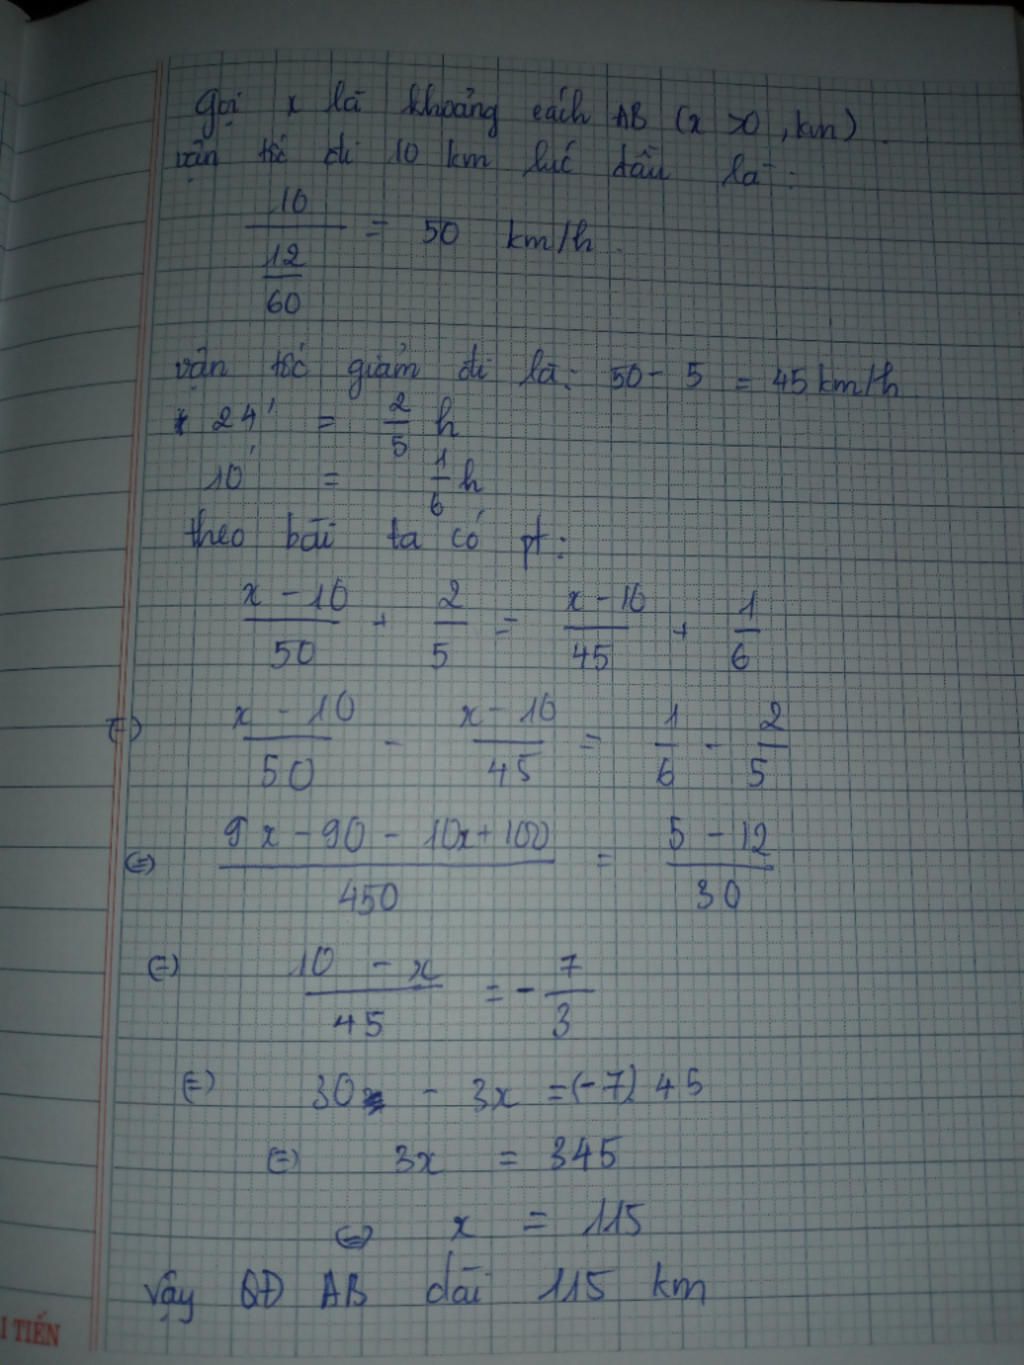 Gọi x là khoảng cách AB (x >0, km).
vận tốc đi 10 km lúc đầu là:
10 / (12/60) = 50 km/h.
vận tốc giảm đi là: 50 - 5 = 45 km/h
24' = 2/5 h
10' = 1/6 h
theo bài ta có pt:
(x - 10)/50 + 2/5 = (x - 10)/45 + 1/6
(=) (x - 10)/50 - (x - 10)/45 = 1/6 - 2/5
(=) (9x - 90 - 10x + 100)/450 = (5 - 12)/30
(=) (10 - x)/45 = - 7/3
(=) 30 - 3x = (-7) 45
(=) 3x = 345
(=) x = 115
Vậy QĐ AB dài 115 km
I TIẾN